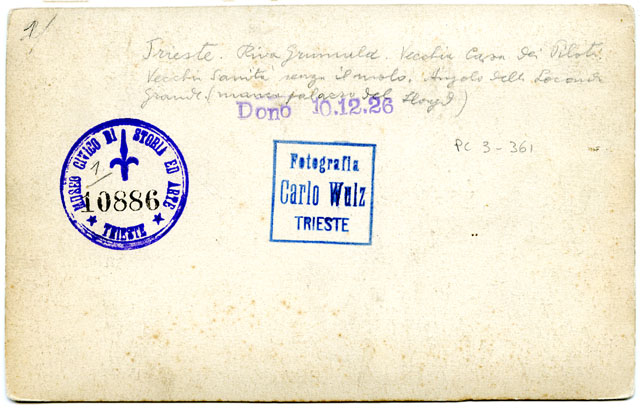 1/
Trieste. Riva Grumula. Vecchia Casa dei Piloti.
Vecchia Sanità senza il molo. Angolo della Locanda
Grande. (manca palazzo del Lloyd)
Dono 10.12.26
PC 3-361
MUSEO CIVICO DI STORIA ED ARTE
1
10886
TRIESTE
Fotografia
Carlo Wulz
TRIESTE